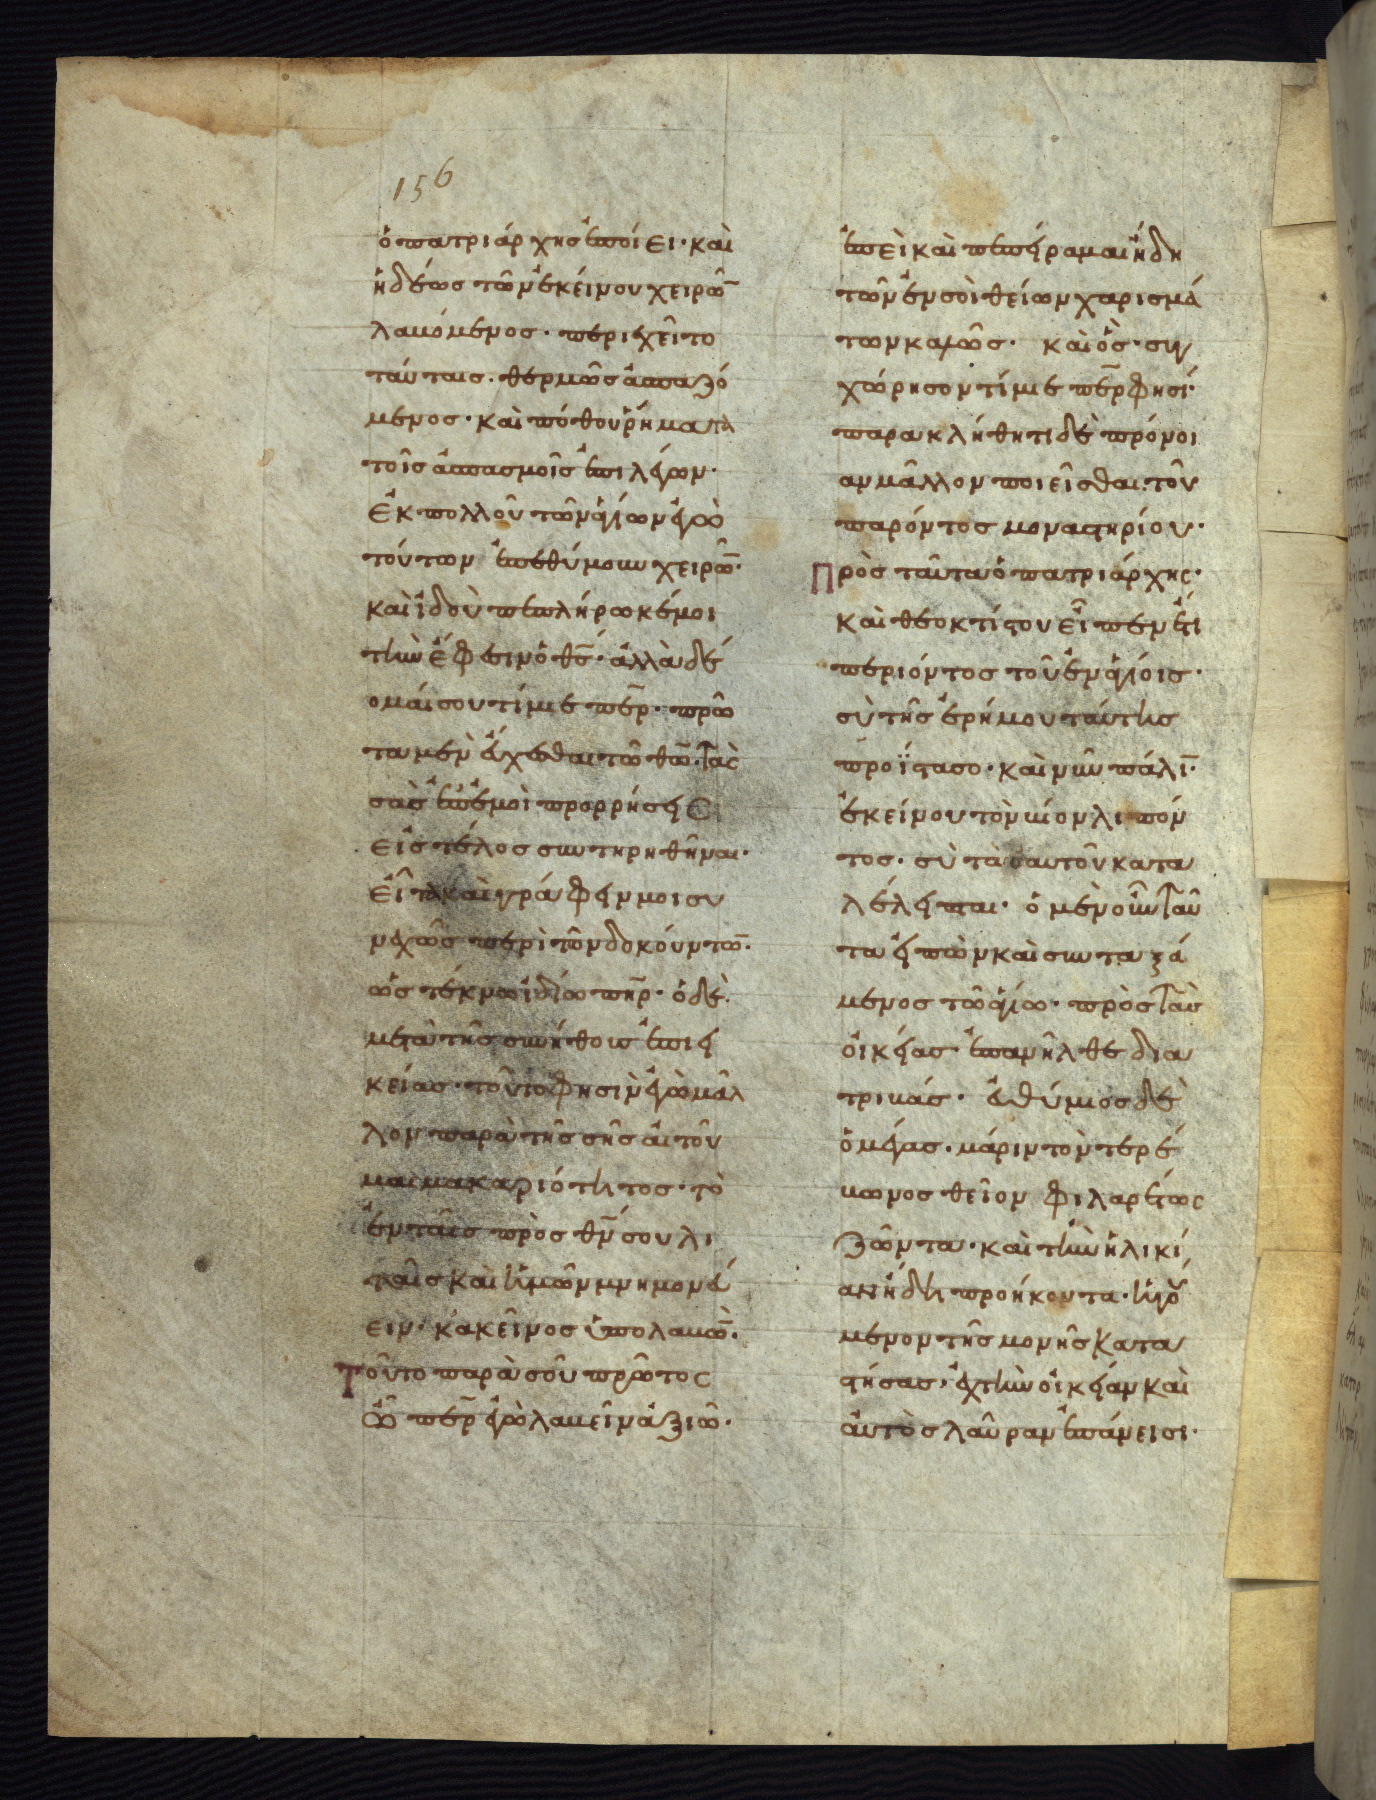 156
ὁ πατριάρχης ἐποίει· καὶ
ἡδέως τῶν ἐκείνου χειρῶ̅
λαβόμενος· περιεχεῖτο
ταύταις· θερμῶς ἀσπαζό
μενος· καὶ πόθου ῥήματα
τοῖς ἀσπασμοῖς ἐπιλέγων·
Ἐκ πολλοῦ τῶν ἁγίων ἐγὼ
τούτων ἐπεθύμουν χειρῶ̅·
καὶ ἰδοὺ πεπλήρωκέ μοι
τὴν ἔφεσιν ὁ θ̅ς· ἀλλὰ δέ
ομαί σου τίμιε πε̅ρ· πρῶ
τα μὲν εὔχεσθαι τῶ θ̅ω· τὰς
σὰς ἐπ' ἐμοὶ προρρήσεις
εἰς τέλος συντηρηθῆναι·
εἶτα καὶ γράφειν μοι συ
νεχῶς περὶ τῶν δοκούντω̅·
ὡς τέκνω ἰδίω π̅ηρ· ὁ δὲ
μετὰ τῆς συνήθους ἐπιει
κείας· τοῦτο φησὶν ἐγὼ μᾶλ
λον παρὰ τῆς σῆς αἰτοῦ
μαι μακαριότητος· τὸ
ἐν ταῖς πρὸς θ̅ν σου λι
ταῖς καὶ ἡμῶν μνημονεύ
ειν· κἀκεῖνος ὑπολαβώ̅·
Τοῦτο παρὰ σοῦ πρῶτος
ὦ πε̅ρ ἐγὼ λαβεῖν ἀξιῶ·
ἐπεὶ καὶ πεπείραμαι ἤδη
τῶν ἐν σοὶ θείων χαρισμά
των καλῶς· καὶ ὃς· συγ
χώρησον τίμιε πε̅ρ φησί·
παρακλήθητι δὲ πρόνοι
αν μᾶλλον ποιεῖσθαι τοῦ
παρόντος μοναστηρίου·
Πρὸς ταῦτα ὁ πατριάρχης·
καὶ θεοκτίστου εἶπεν ἔτι
περιόντος τοῦ ἐν ἁγίοις·
σὺ τῆς ἐρήμου ταύτης
προΐστασο· καὶ νῦν πάλι̅·
ἐκείνου τὸν βίον λιπόν
τος· σὺ τὰ σαυτοῦ κατα
λέλειπται· ὁ μὲν οὖν ταῦ
τα εἰπὼν καὶ συνταξά
μενος τῶ ἁγίω· πρὸς τὰς
οἰκείας ἐπανῆλθε δια
τριβάς· εὐθύμιος δὲ
ὁ μέγας· μάριν τὸν τερέ
βωνος θεῖον φιλαρέτως
ζῶντα· καὶ τὴν ἡλικί
αν ἤδη προήκοντα· ἡγού
μενον τῆς μονῆς κατα
στήσας· εἰς τὴν οἰκείαν καὶ
αὐτὸς λαύραν ἐπάνεισι·